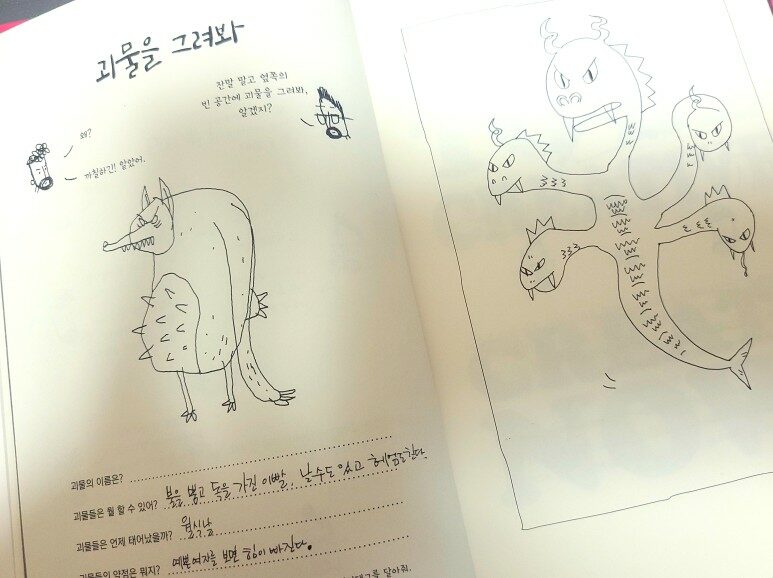 괴물을 그려봐
잔말 말고 옆쪽의
빈 공간에 괴물을 그려봐,
알겠지?
왜?
까칠하긴! 알았어.
괴물의 이름은?
괴물들은 뭘 할 수 있어? 불을 뿜고 독을 가진 이빨. 날수도 있고 헤엄도친다.
괴물들은 언제 태어났을까?
괴물들의 약점은 뭐지? 예쁜여자를 보면 힘이 빠진다.
달아줘.